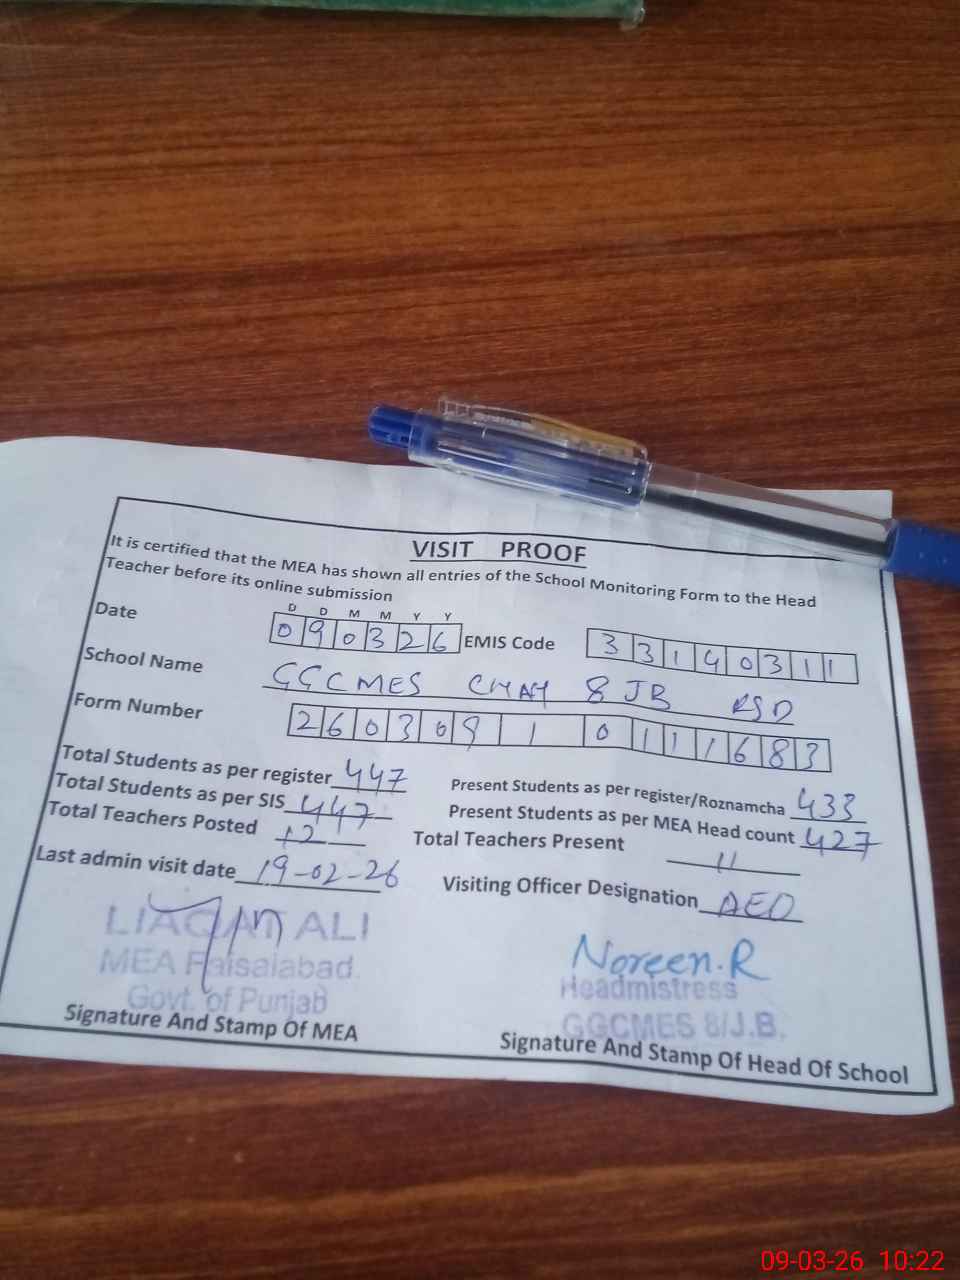 VISIT PROOF
It is certified that the MEA has shown all entries of the School Monitoring Form to the Head
Teacher before its online submission
D D M M Y Y
Date 090326 EMIS Code 33140311
School Name GGCMES CHAH 8 JB RSD
Form Number 260309 1 0111683
Total Students as per register 447 Present Students as per register/Roznamcha 433
Total Students as per SIS 447 Present Students as per MEA Head count 427
Total Teachers Posted 12 Total Teachers Present 11
Last admin visit date 19-02-26 Visiting Officer Designation AEO
LIAQAT ALI
MEA Faisalabad.
Govt. of Punjab
Signature And Stamp Of MEA
Noreen.R
Headmistress
GGCMES 8/J.B.
Signature And Stamp Of Head Of School
09-03-26 10:22